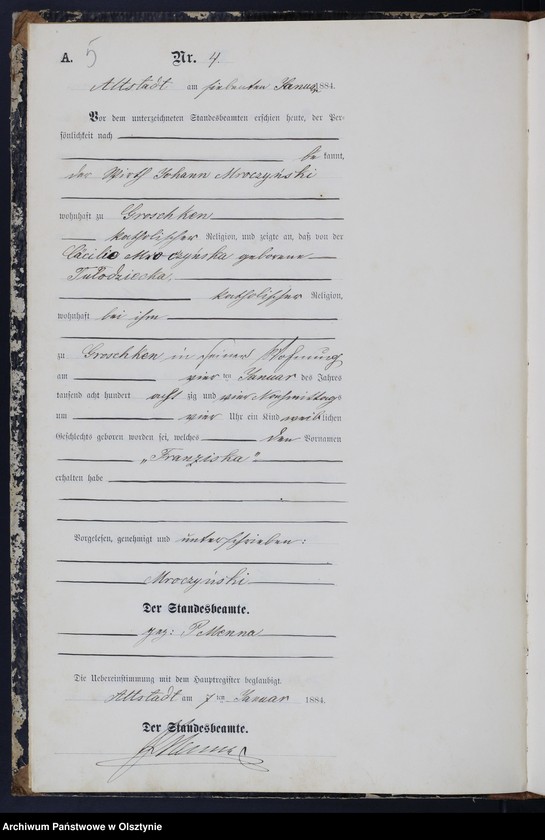 A. 5 Nr. 4.
Altstadt am siebenten Januar 1884.
Vor dem unterzeichneten Standesbeamten erschien heute, der Per-
sönlichkeit nach
be kannt,
der Wirth Johann Mroczyński
wohnhaft zu Groschken
katholischer Religion, und zeigte an, daß von der
Cäcilie Mroczyńska geborene
Tułodziecka
katholischer Religion,
wohnhaft bei ihm
zu Groschken in seiner Wohnung
am vier ten Januar des Jahres
tausend acht hundert acht zig und vier Nachmittags
um vier Uhr ein Kind weib lichen
Geschlechts geboren worden sei, welches den Vornamen
„Franziska"
erhalten habe
Vorgelesen, genehmigt und unterschrieben:
Mroczyński
Der Standesbeamte.
gez: P Menna
Die Uebereinstimmung mit dem Hauptregister beglaubigt.
Altstadt am 7 ten Januar 1884.
Der Standesbeamte.
Archiwum Państwowe w Olsztynie